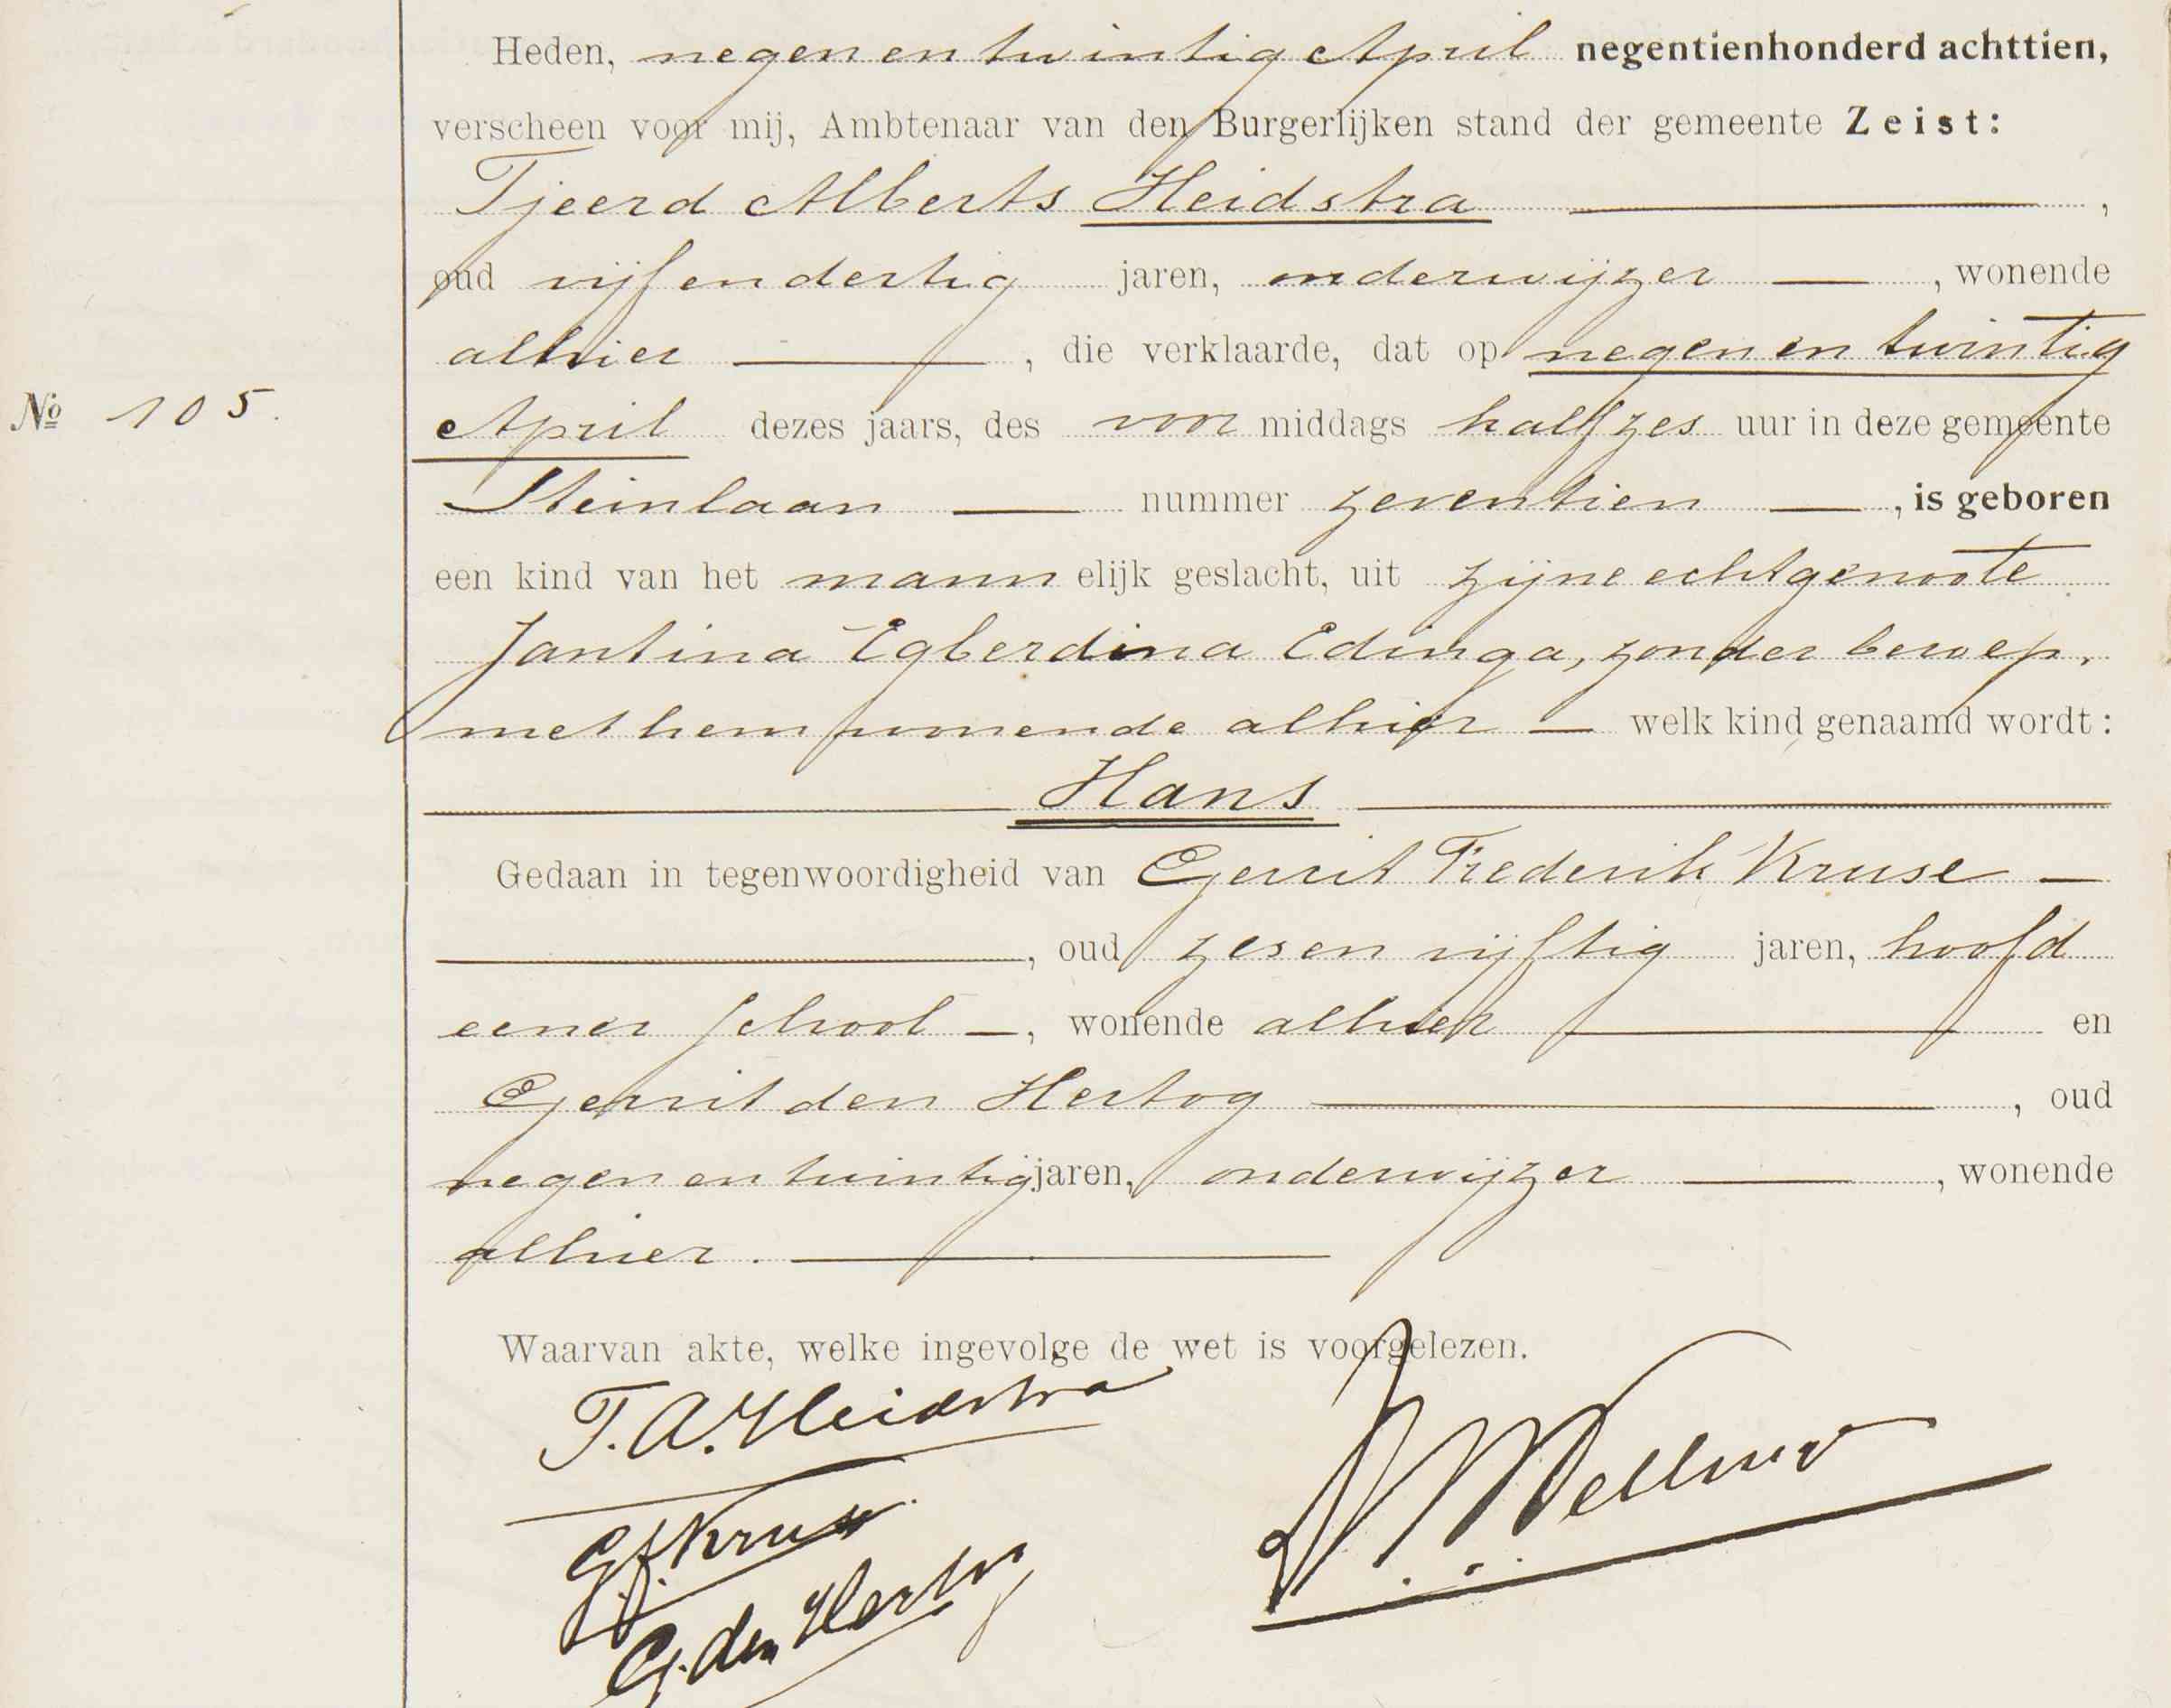 Heden, negen en twintig April negentienhonderd achttien,
verscheen voor mij, Ambtenaar van den Burgerlijken stand der gemeente Zeist:
Tjeerd Alberts Heidstra ,
oud vijf en dertig jaren, onderwijzer , wonende
alhier , die verklaarde, dat op negen en twintig
No 105.
April dezes jaars, des voor middags half zes uur in deze gemeente
Steinlaan nummer zeventien , is geboren
een kind van het mann elijk geslacht, uit zijne echtgenoote
Jantina Egberdina Edinga, zonder beroep,
met hem wonende alhier — welk kind genaamd wordt:
Hans
Gedaan in tegenwoordigheid van Gerrit Frederik Kruse —
, oud zes en vijftig jaren, hoofd
eener school —, wonende alhier en
Gerrit den Hertog , oud
negen en twintig jaren, onderwijzer , wonende
alhier.
Waarvan akte, welke ingevolge de wet is voorgelezen.
T. A. Heidstra
G. F. Kruse
G. den Hertog